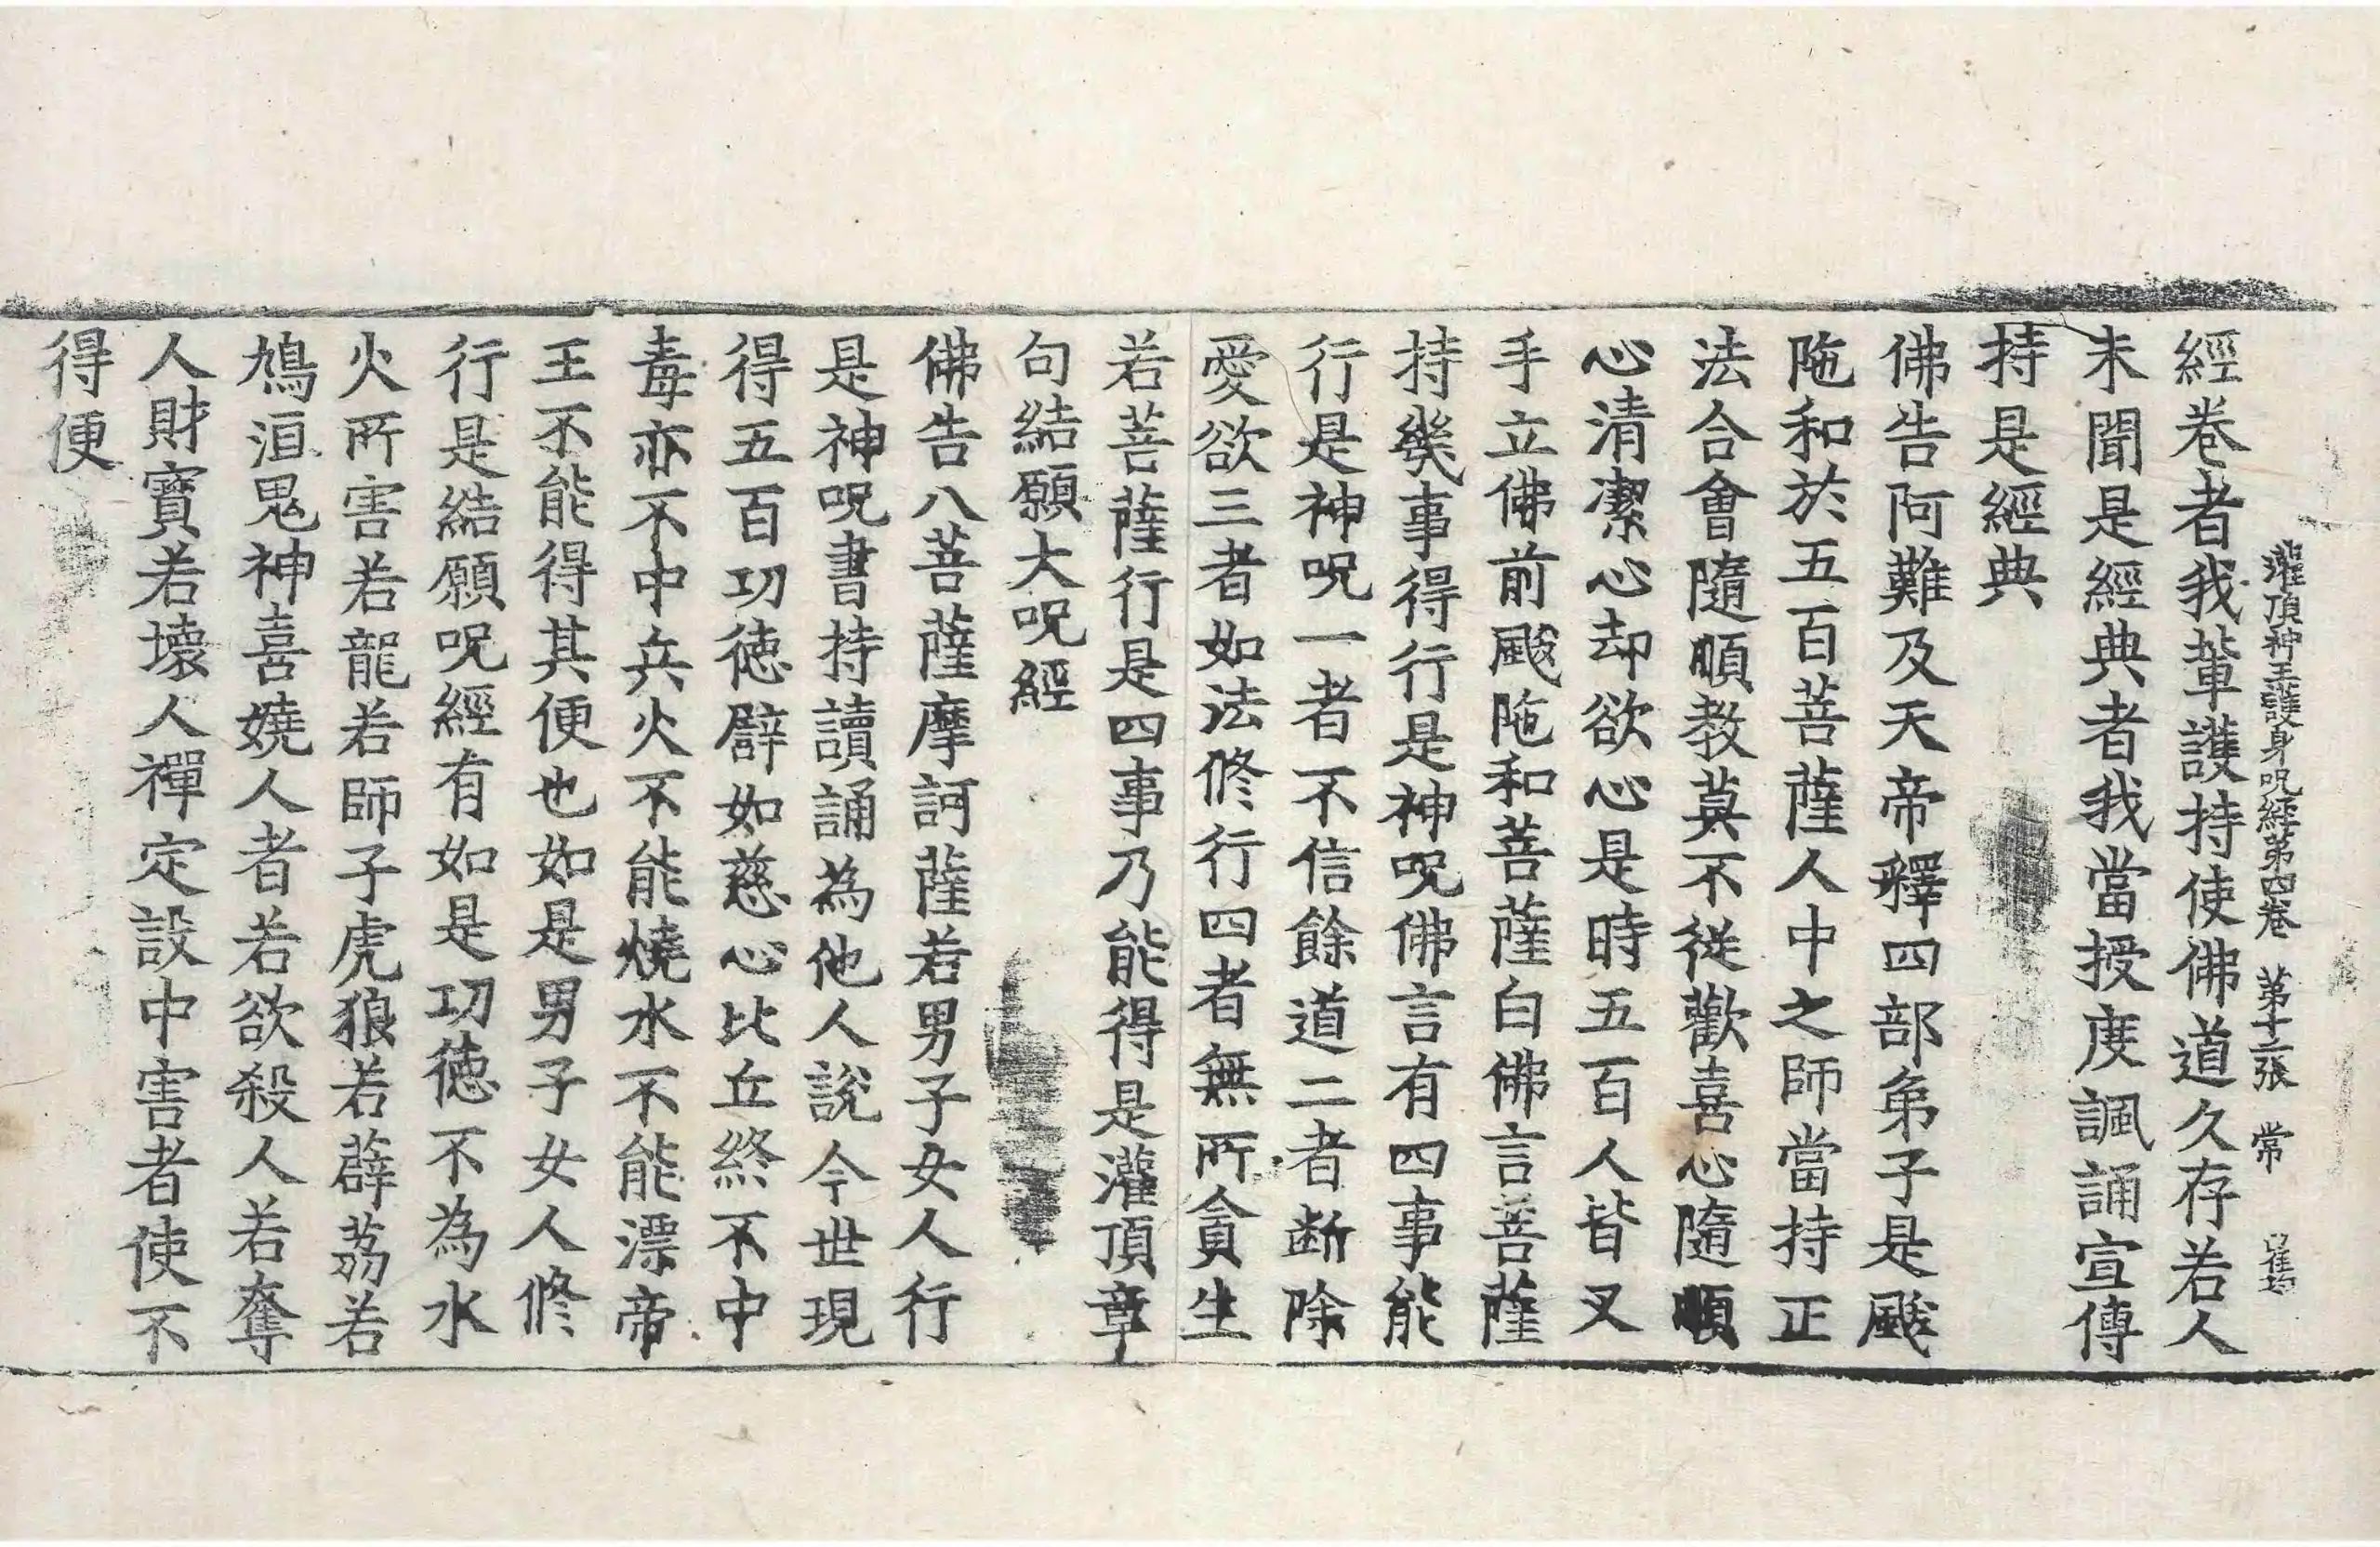 灌頂神王護身呪經第四卷　第十二張　常　崔均
經卷者我輩護持使佛道久存若人
未聞是經典者我當授度諷誦宣傳
持是經典
佛告阿難及天帝釋四部弟子是颰
陁和於五百菩薩人中之師當持正
法合會隨順教莫不從歡喜心隨順
心清潔心却欲心是時五百人皆叉
手立佛前颰陁和菩薩白佛言菩薩
持幾事得行是神呪佛言有四事能
行是神呪一者不信餘道二者断除
愛欲三者如法修行四者無所貪生
若菩薩行是四事乃能得是灌頂章
句結願大呪經
佛告八菩薩摩訶薩若男子女人行
是神呪書持讀誦為他人說今世現
得五百功徳譬如慈心比丘終不中
毒亦不中兵火不能燒水不能漂帝
王不能得其便也如是男子女人修
行是結願呪經有如是功徳不為水
火所害若龍若師子虎狼若薜荔若
鳩洹鬼神喜嬈人者若欲殺人若奪
人財寳若壞人禪定設中害者使不
得便